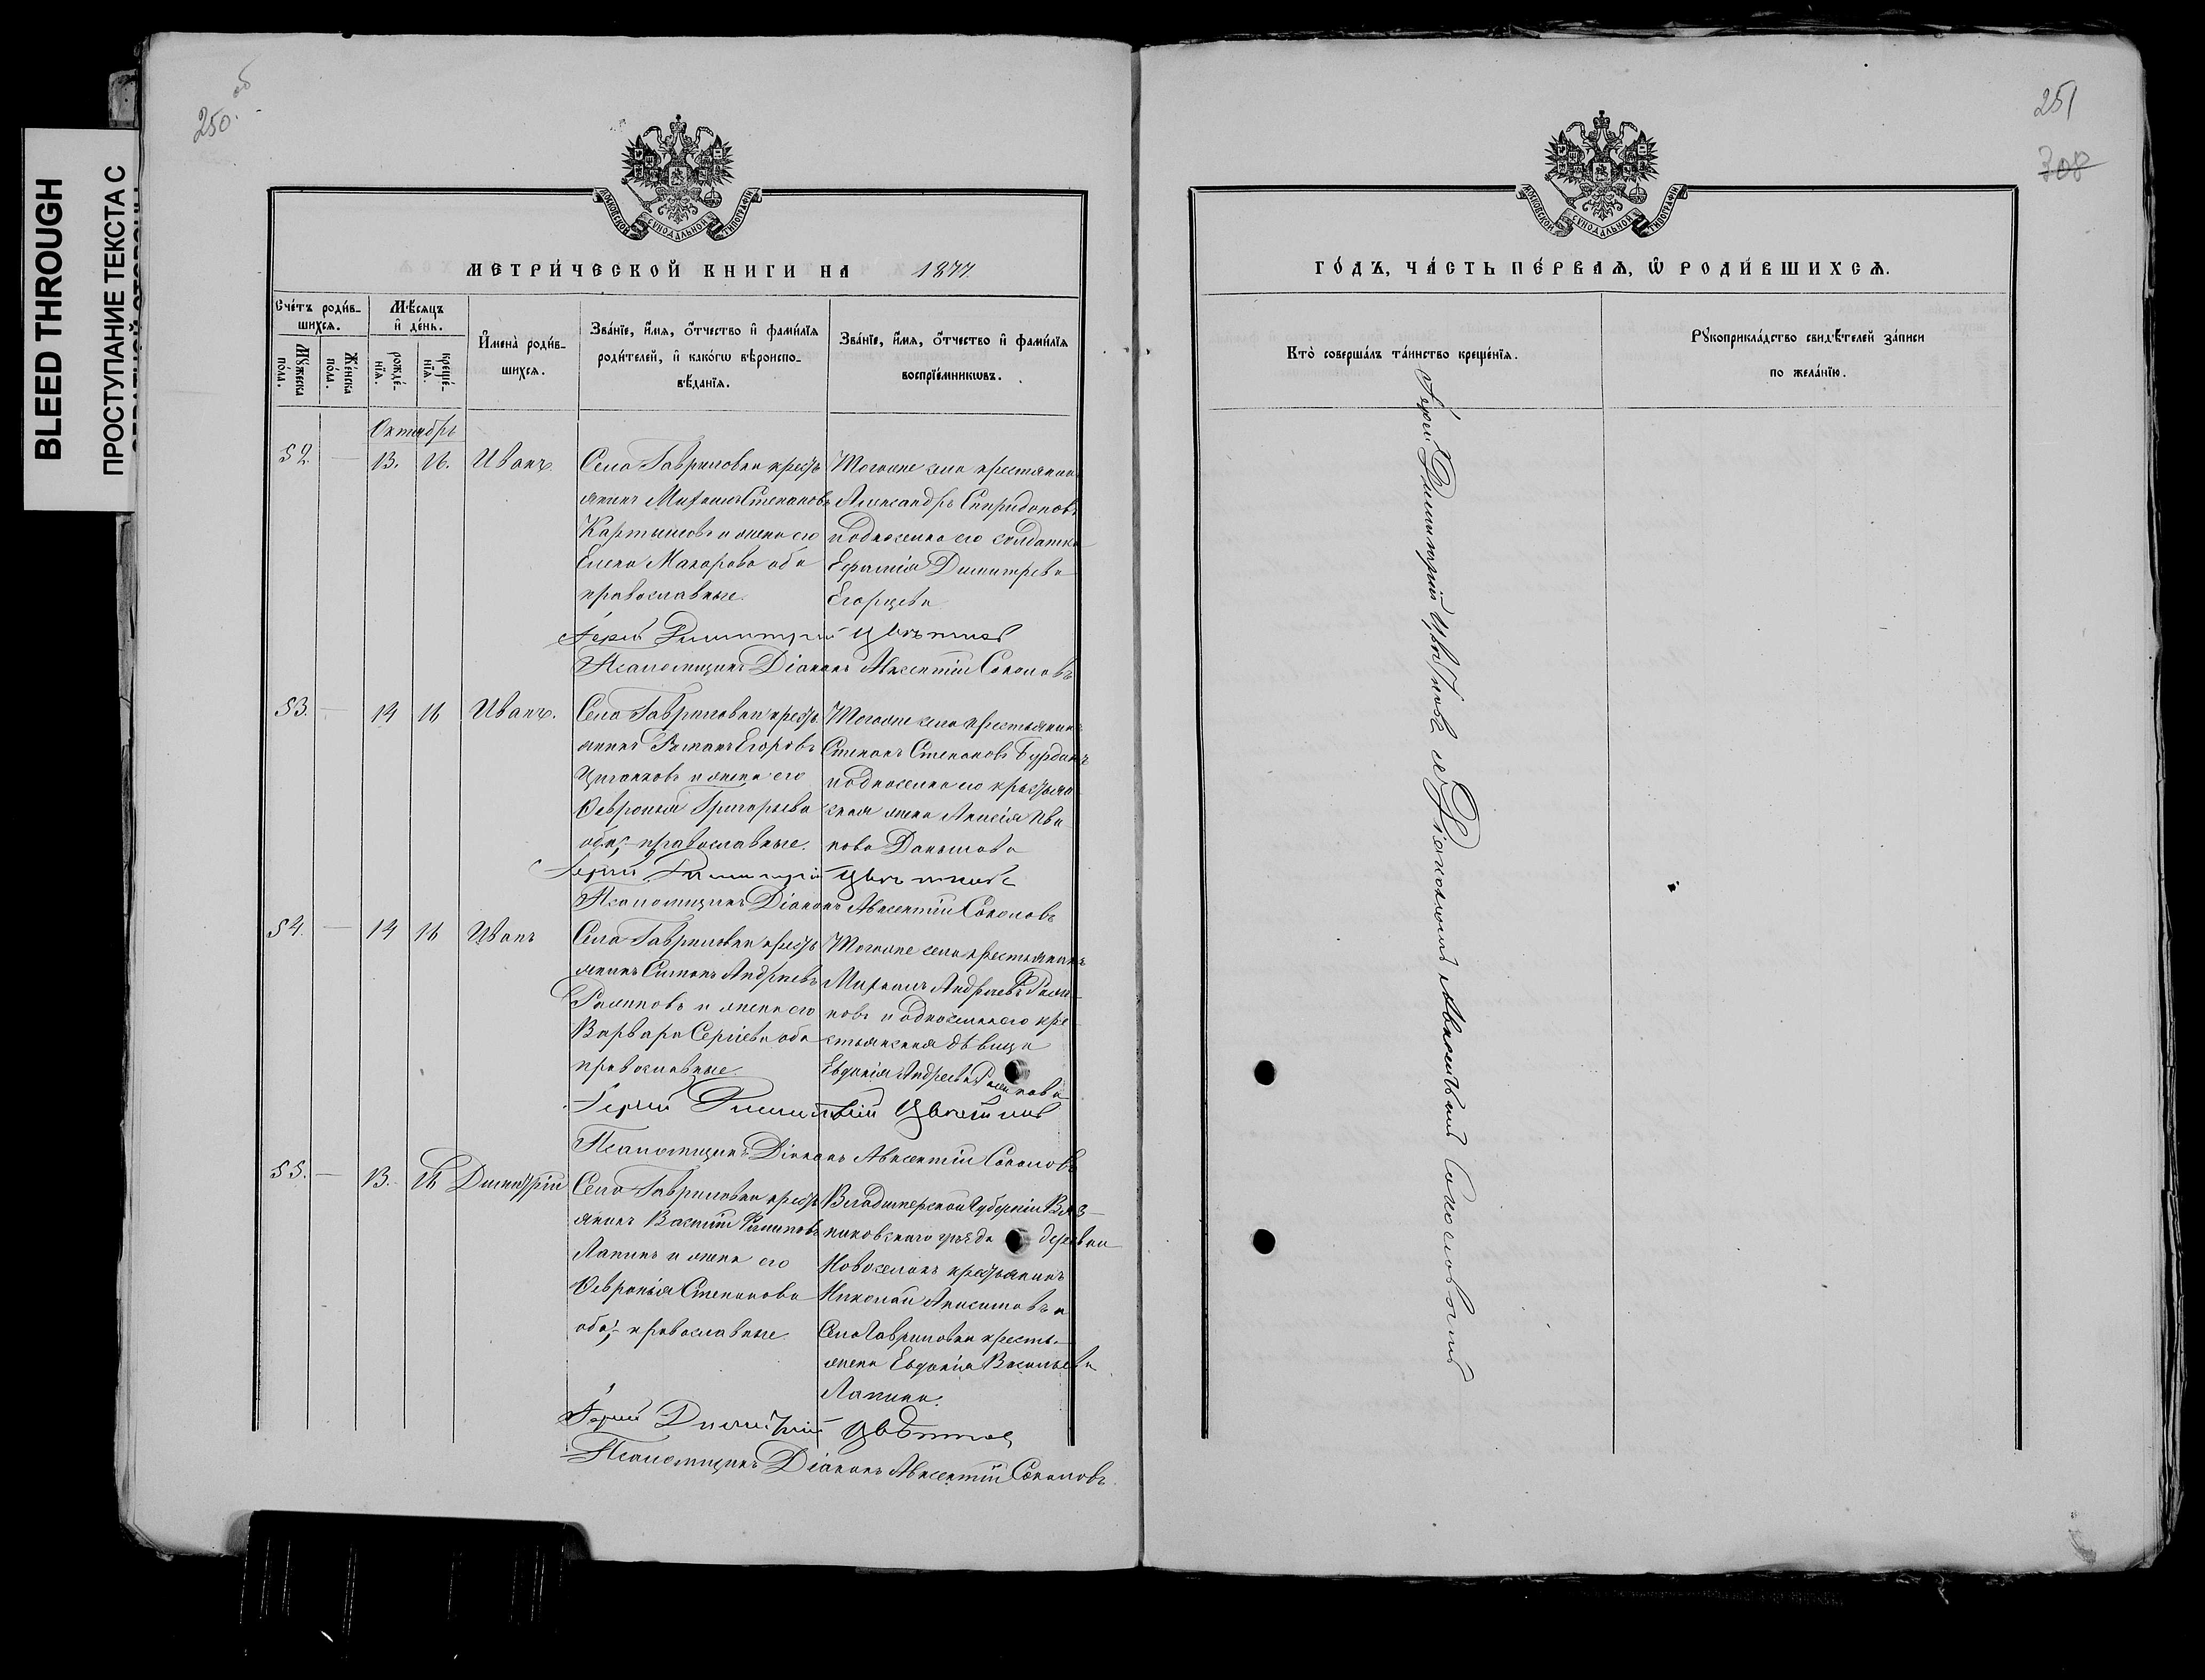 250. об
BLEED THROUGH
ПРОСТУПАНИЕ ТЕКСТА С
МОСКОВСКОЙ СѴНОДАЛЬНОЙ ТИПОГРАФІИ
МЕТРИ́ЧЕСКОЙ КНИГИ НА 1877
Сче́тъ роди́в-
шихся.
Мꙋ́жеска
по́ла.
Же́нска
по́ла.
Мѣ́сяцъ
и҆ де́нь.
рожде́-
нїя.
креще́-
нїя.
И҆мена̀ роди́в-
шихся.
Зва́нїе, и҆́мя, ѻ҆́тчество и҆ фами́лїя
роди́телей, и҆ како́гѡ вѣроиспо-
вѣ́данїя.
Зва́нїе, и҆́мя, ѻ҆́тчество и҆ фами́лїя
воспрїе́мникѡвъ.
Октябрь
52. — 13. 16. Иванъ
Села Гавриловки кресть
янинъ Михаилъ Степановъ
Картышовъ и жена его
Елена Макарова оба
православные.
Тогоже села крестьянинъ
Александръ Спиридоновъ
подноселка его солдатка
Ефимія Димитрева
Егорцева
Іерей Димитрій Цвѣтковъ
Псаломщикъ Діаконъ Авксентій Соколовъ
53. — 14 16 Иванъ.
Села Гавриловки кресть
янинъ Романъ Егоровъ
Цыганковъ и жена его
Ѳевронья Григорьева
оба, православные.
Тогоже села крестьянинъ
Степанъ Степановъ
подноселка его крестьян
ская жена Анисія Ива
нова Данышова
Іерей Димитрій Цвѣтковъ
Псаломщикъ Діаконъ Авксентій Соколовъ
54. — 14 16 Иванъ
Села Гавриловки кресть
янинъ Симонъ Андреевъ
и жена его
Варвара Сергіева оба
православные.
Тогоже села крестьянинъ
Михаилъ Андреевъ
новъ и подноселка его кре
стьянская дѣвица
Евдокія Андреева
Іерей Димитрій Цвѣтковъ
Псаломщикъ Діаконъ Авксентій Соколовъ
55. — 13. 16 Димитрій
Села Гавриловки кресть
янинъ Василій Филиповъ
Лапинъ и жена его
Ѳевронія Степанова
оба, православные
Владимерской Губерніи Вяз
никовскаго уѣзда деревни
Новоселокъ крестьянинъ
Николай Анисимовъ и
Села Гавриловки кресть.
жена Евдокія Васильева
Лапина.
Іерей Димитрій Цвѣтковъ
Псаломщикъ Діаконъ Авксентій Соколовъ
251
308
МОСКОВСКОЙ СѴНОДАЛЬНОЙ ТИПОГРАФІИ
ГО́ДЪ, ЧА́СТЬ ПЕ́РВАЯ, Ѡ҆ РОДИ́ВШИХСЯ.
Кто̀ соверша́лъ та́инство креще́нїя.
Рꙋкоприкла́дство свидѣ́телей за́писи
по жела́нїю.
Іерей Димитрій Цвѣтковъ съ Діакономъ Авксентіемъ Соколовымъ